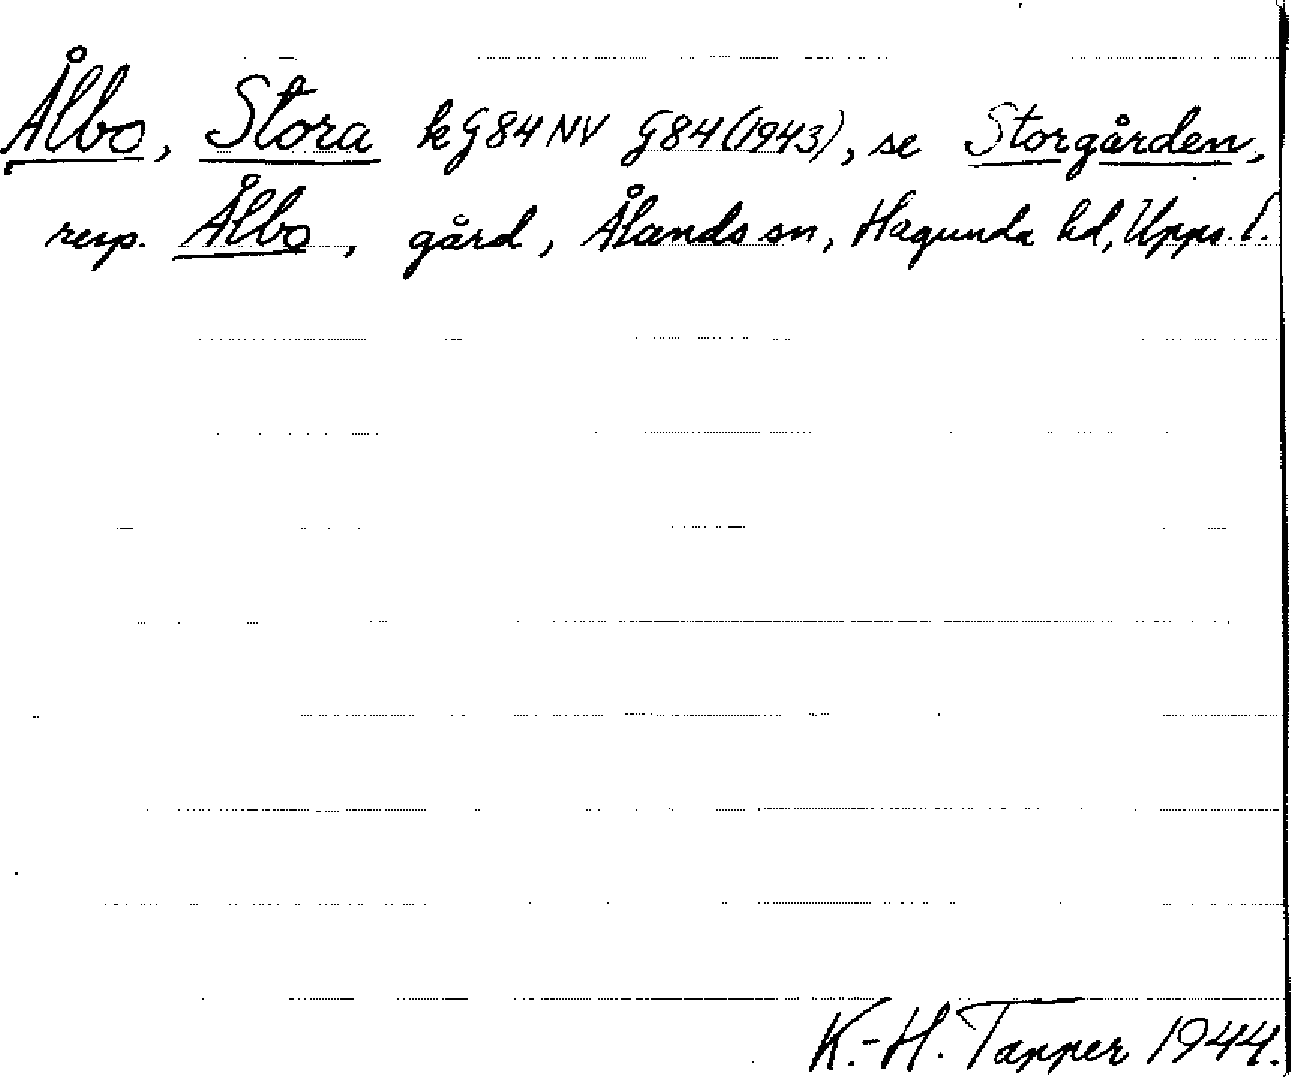 Ålbo, Stora k G84NV G84(1943), se Storgården,
resp. Ålbo, gård, Ålands sn, Hagunda hd, Upps. l.
K.-H. Tapper 1944.